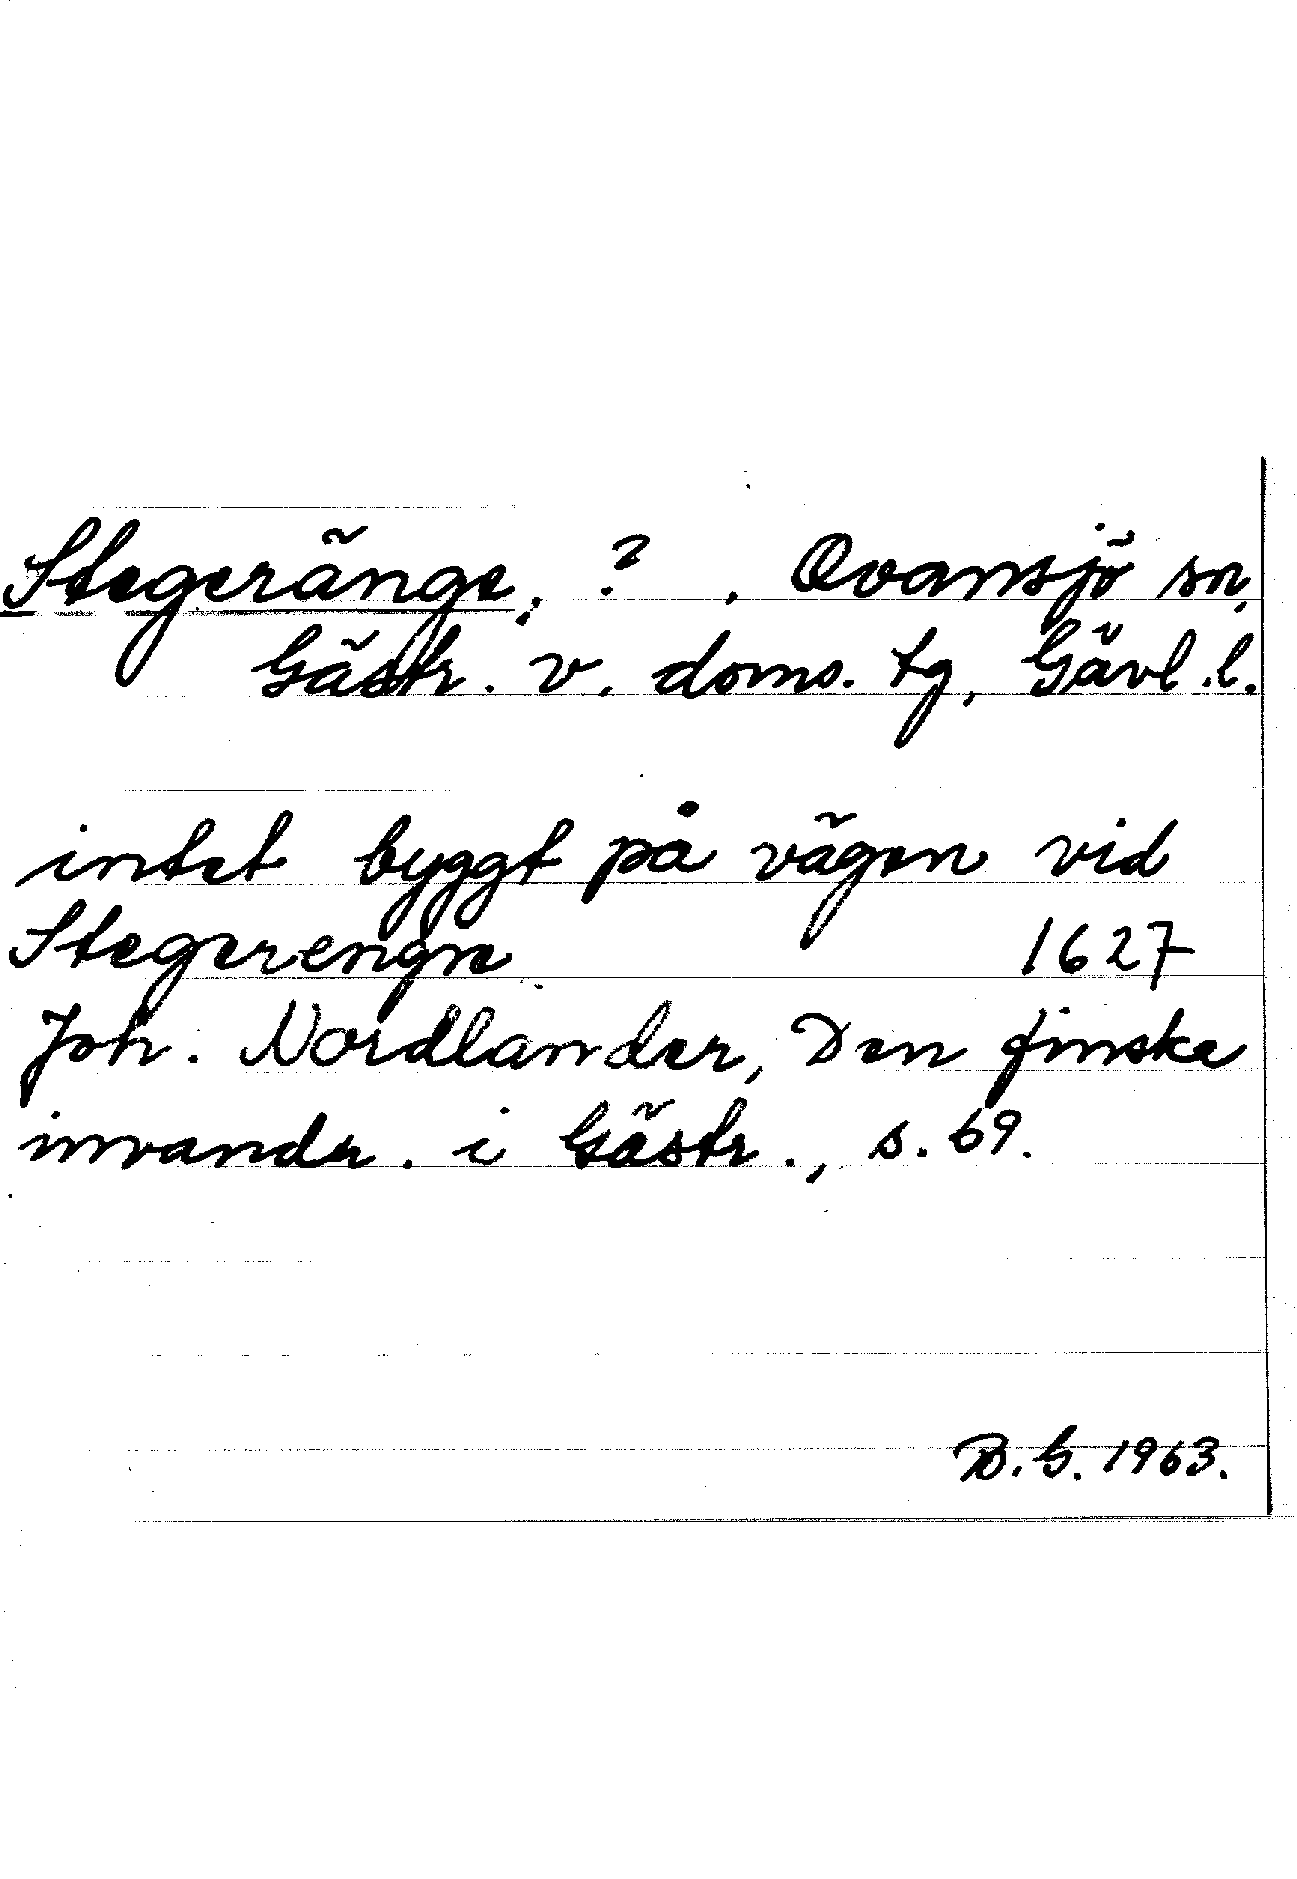 Stegeränge, ?, Ovansjö sn,
Gästr. v. doms. tg, Gävl.l.
intet byggt på vägen vid
Stegerengne 1627
Joh. Nordlander, Den finske
invandr. i Gästr., s. 69.
B.G. 1963.